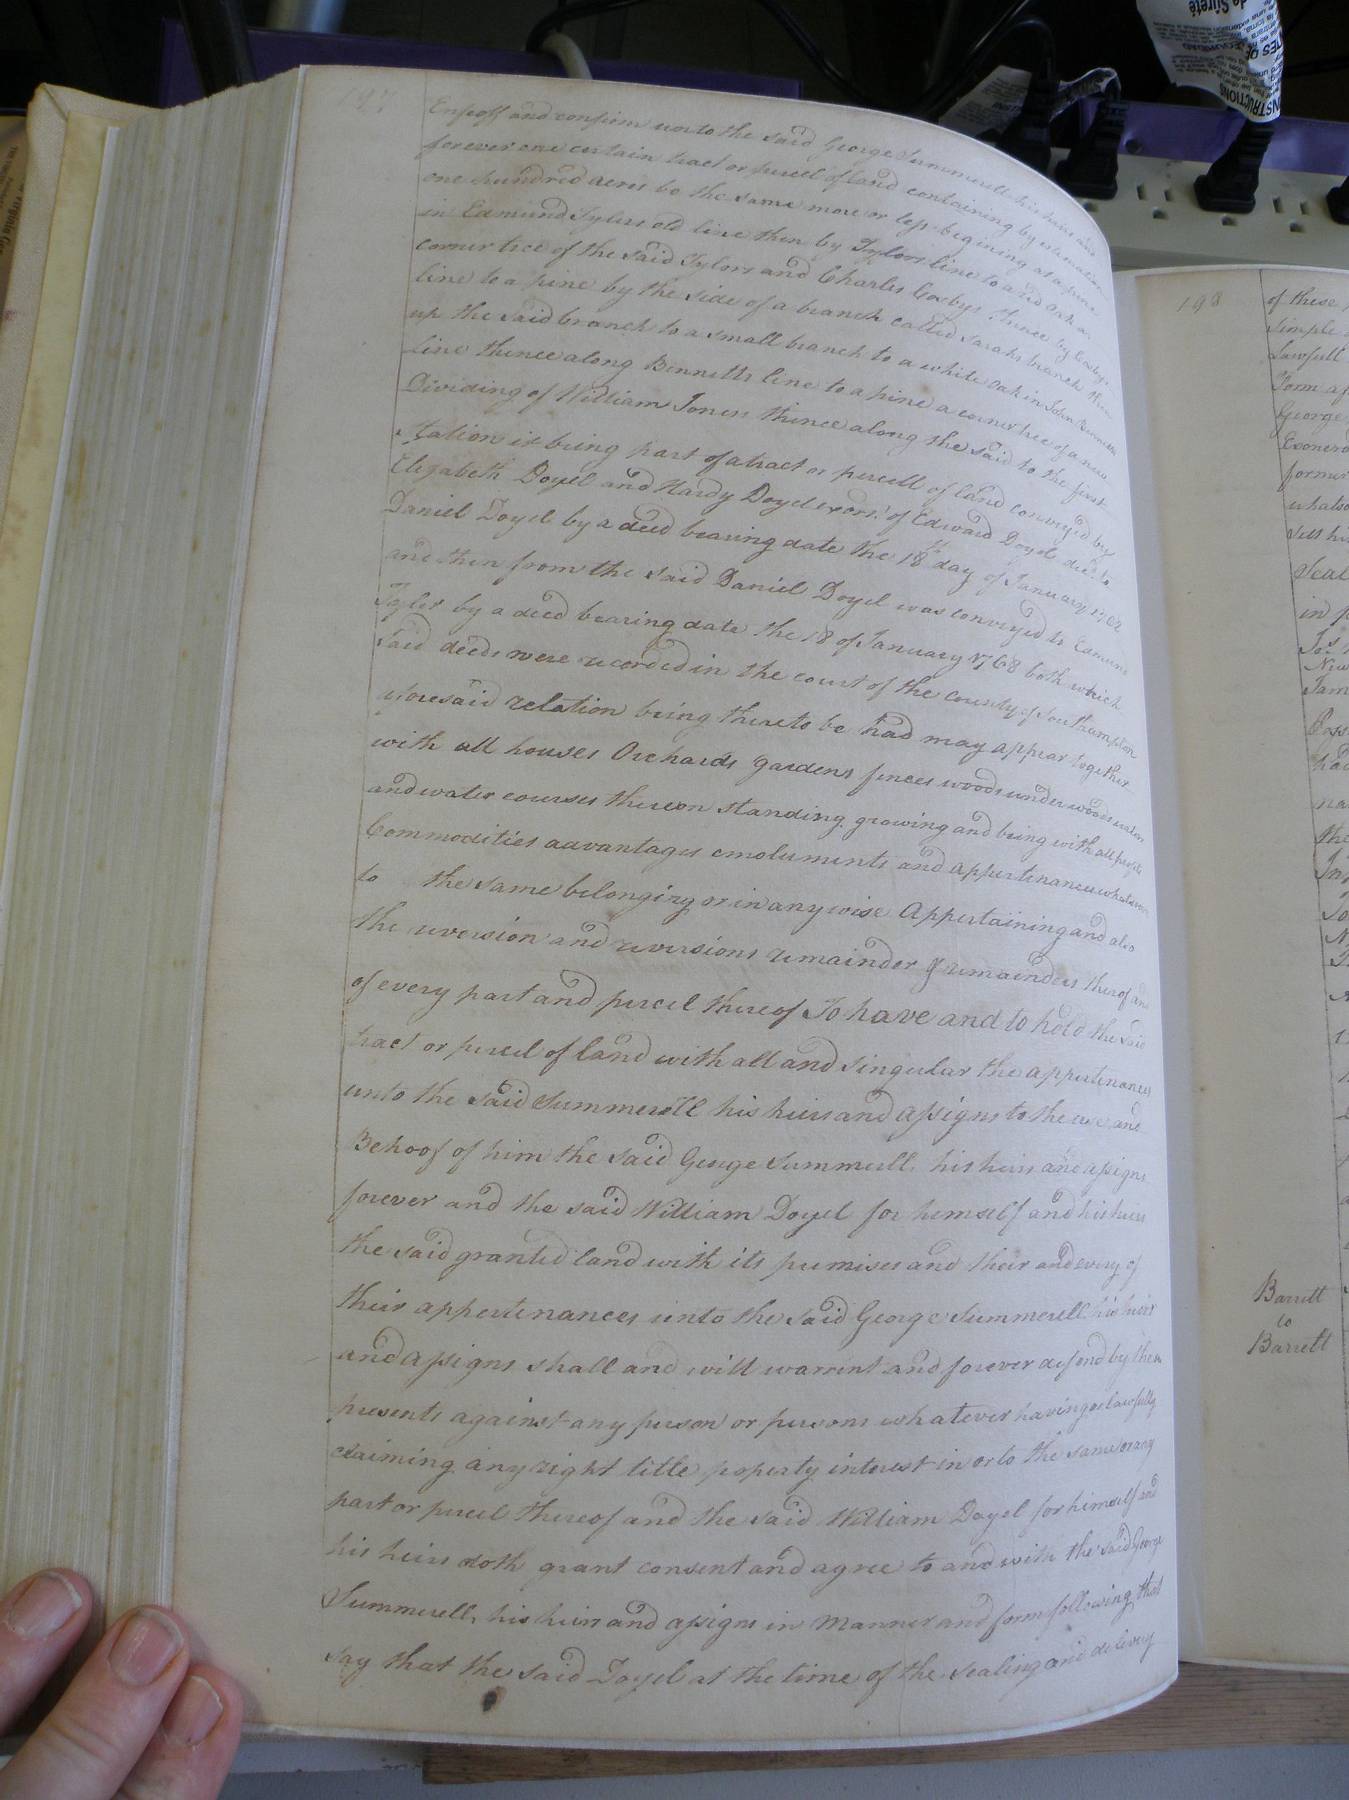 197
Enfeoff and confirm unto the said George Summerell his heirs and
forever one certain tract or purcel of land containing by estimation
one hundred acres be the same more or less begining at a pine
in Edmund Tylers old line then by Tylors line to a red oak a
corner tree of the said Tylors and Charles Cosbys thence by Cosbys
line to a pine by the side of a branch called Sarahs branch then
up the said branch to a small branch to a white oak in John Bennetts
line thence along Bennetts line to a pine a corner tree of a new
Dividing of William Jones thence along the said to the first
Station it being part of a tract or percell of land convey'd by
Elizabeth Doyel and Hardy Doyel exors: of Edward Doyel dec. to
Daniel Doyel by a deed bearing date the 18th day of January 1762
and then from the said Daniel Doyel was conveyed to Edmund
Tyler by a deed bearing date the 18 of January 1768 both which
said deeds were recorded in the court of the county of Southampton
aforesaid relation being thereto be had may appear together
with all houses Orchards gardens fences woods underwoods
and water courses thereon standing growing and being with all profits
Commodities advantages emoluments and appurtenances whatsoever
to the same belonging or in any wise Appertaining and also
the reversion and reversions remainder & remainders thereof and
of every part and percel thereof To have and to hold the said
tract or purcel of land with all and singular the appertenances
unto the said Summerell his heirs and assigns to the use and
Behoof of him the said George Summerell his heirs and assigns
forever and the said William Doyel for himself and his heirs
the said granted land with its premises and their and every of
their appertenances unto the said George Summerell his heirs
and assigns shall and will warrent and forever defend by these
presents against any person or persons whatever having or lawfully
claiming any right title property interest in or to the same or any
part or purcel thereof and the said William Doyel for himself and
his heirs doth grant consent and agree to and with the said George
Summerell, his heirs and assigns in Manner and form following that
say that the said Doyel at the time of the sealing and delivery
198
of these
simple
Lawfull
George
former
whatso
Seal
in p
Barrett
to
Barrett
INSTRUCTIONS
de Sûreté